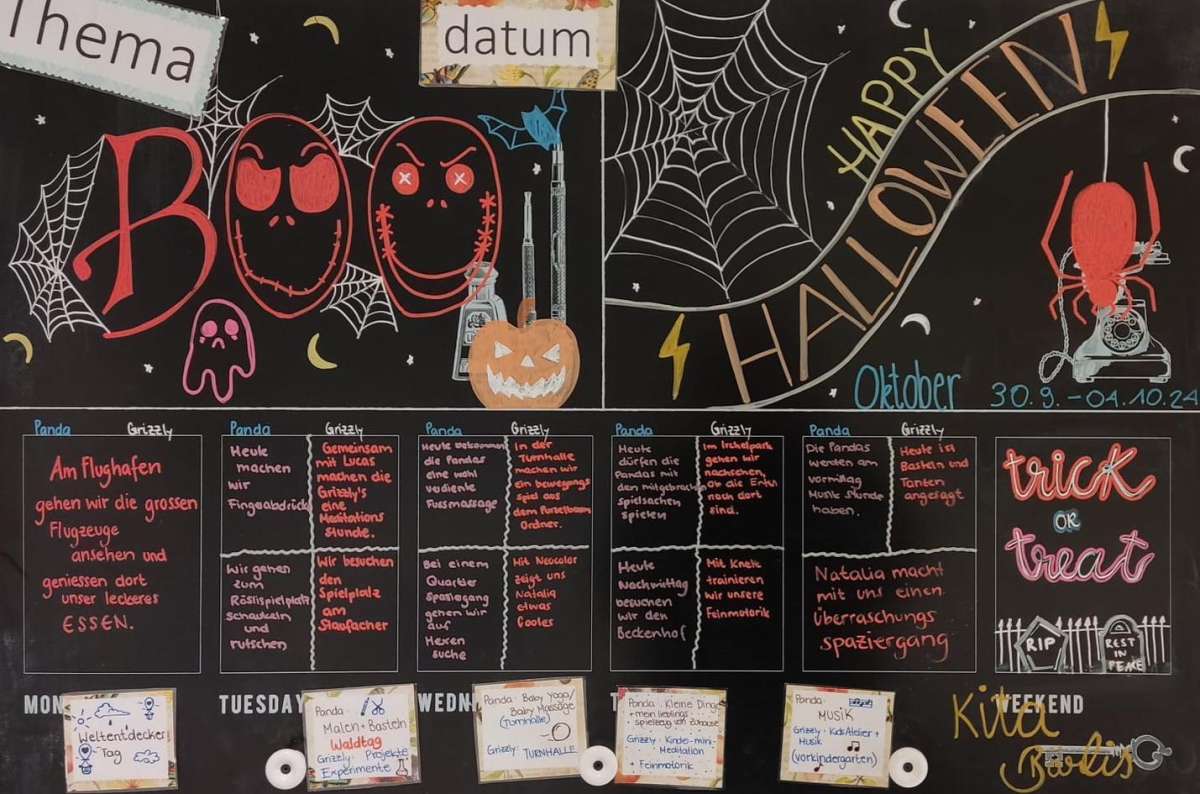 Thema
datum
BOO
HAPPY
HALLOWEEN
Oktober
30.9.-04.10.24
Panda Grizzly
Am Flughafen
gehen wir die grossen
Flugzeuge
ansehen und
geniessen dort
unser leckeres
ESSEN.
Panda Grizzly
Heute
machen
wir
Fingeabdrück
Gemeinsam
mit Lucas
machen die
Grizzly's
eine
Meditations
Stunde.
Wir gehen
zum
Röslispielplatz
schaukeln
und
rutschen
Wir besuchen
den
Spielplatz
am
Staufacher
Panda Grizzly
Heute bekommen
die Pandas
eine wohl
verdiente
Fussmassage
In der
Turnhalle
machen wir
ein bewegungs
spiel aus
dem Purzelbaum
Ordner.
Bei einem
Quartier
Spaziergang
gehen wir
auf
Hexen
suche
Mit Neocolor
zeigt uns
Natalia
etwas
Cooles
Panda Grizzly
Heute
dürfen die
Pandas mit
den mitgebrachten
spielsachen
spielen
Im Irchelpark
gehen wir
nachsehen,
ob die Enten
noch dort
sind.
Heute
Nachmittag
besuchen
wir den
Beckenhof
Mit Knete
trainieren
wir unsere
Feinmotorik
Panda Grizzly
Die Pandas
werden am
vormittag
Musik Stunde
haben.
Heute ist
Basteln und
Tanten
angesagt
Natalia macht
mit uns einen
Überraschungs
spaziergang
trick
OR
treat
RIP
REST
IN
PEACE
MON
TUESDAY
WEDN
T
WEEKEND
Weltentdecker
Tag
Panda ·
Malen + Basteln
Waldtag
Grizzly · Projekte
Experimente
Panda · Baby Yoga/
Baby Massage
(Turnhalle)
Grizzly · TURNHALLE
Panda · Kleine Dinge
+ mein lieblings
spielzeug von zuhause
Grizzly · Kinder-mini-
Meditation
+ Feinmotorik
Panda ·
MUSIK
Grizzly · Kids Atelier +
Musik
(Vorkindergarten)
Kita